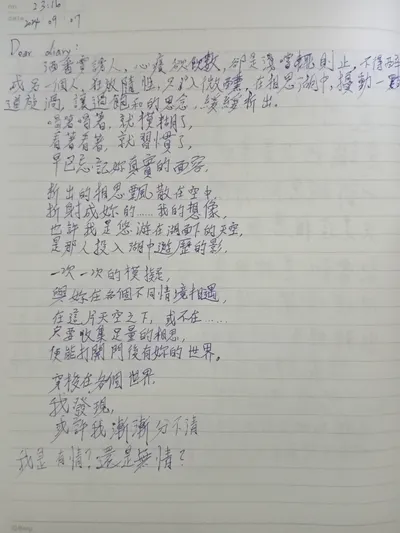 23:16
2014 09 07
Dear diary:
酒香雖誘人,心癢欲飲數,卻是淺嘗輒止,不得不
或另一個人,在放隨想,只入微醺,在相思湖中,攪動一
過漩渦,讓過飽和的思念,緩緩析出。
嚐著嚐著,就模糊了,
看著看著,就習慣了,
早已忘記妳真實的面容,
析出的相思飄散在空中,
折射成妳的……我的想像,
也許我是您游在湖面下的天空,
是那人投入湖中遊歷的影,
一次一次的模擬,
與妳在各個不同情境相遇,
在這片天空之下,或不在……
只要收集足量的相思,
便能打開門後有妳的世界。
穿梭在各個世界,
我發現,
或許我漸漸分不清
我是有情?還是無情?